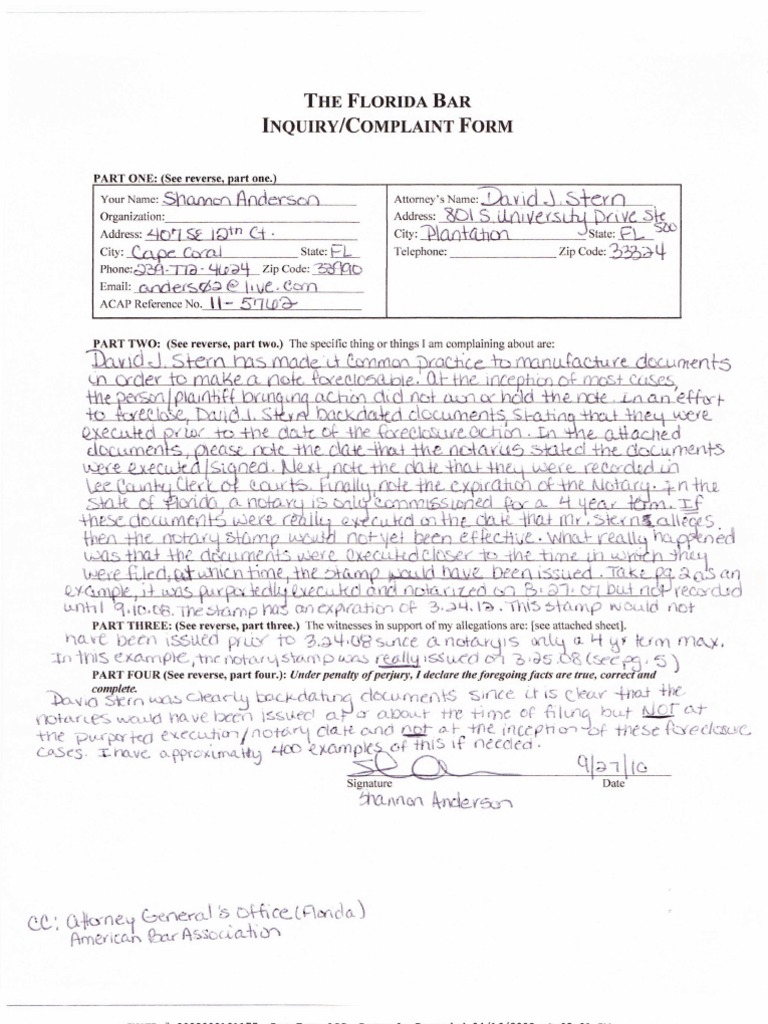 THE FLORIDA BAR
INQUIRY/COMPLAINT FORM
PART ONE: (See reverse, part one.)
Your Name: Shannon Anderson
Organization:
Address: 407 SE 12th Ct.
City: Cape Coral State: FL
Phone: 239-772-4624 Zip Code: 33990
Email: anders02@live.com
ACAP Reference No. 11-5762
Attorney's Name: David J. Stern
Address: 801 S. University Drive Ste 500
City: Plantation State: FL
Telephone: Zip Code: 33324
PART TWO: (See reverse, part two.) The specific thing or things I am complaining about are:
David J. Stern has made it Common Practice to manufacture documents
in order to make a note foreclosable. At the inception of most cases,
the person/plaintiff bringing action did not own or hold the note. In an effort
to foreclose, David J. Stern backdated documents, stating that they were
executed prior to the date of the foreclosure action. In the attached
documents, please note the date that the notarius stated the documents
were executed/signed. Next, note the date that they were recorded in
Lee County Clerk of Courts. Finally note the expiration of the Notary. In the
State of Florida, a notary is only commissioned for a 4 year term. If
these documents were really executed on the date that Mr. Sterns alleges,
then the notary stamp would not yet been effective. What really happened
was that the documents were executed closer to the time in which they
were filed, at which time, the stamp would have been issued. Take pg 2 as an
example, it was purportedly executed and notarized on 8.27.07 but not recorded
until 9.10.08. The stamp has an expiration of 3.24.12. This stamp would not
PART THREE: (See reverse, part three.) The witnesses in support of my allegations are: [see attached sheet].
have been issued prior to 3.24.08 since a notary is only a 4 yr term max.
In this example, the notary stamp was really issued on 3.25.08 (see pg. 5)
PART FOUR (See reverse, part four.): Under penalty of perjury, I declare the foregoing facts are true, correct and
complete.
David Stern was clearly backdating documents since it is clear that the
notaries would have been issued at or about the time of filing but NOT at
the purported execution/notary date and not at the inception of these foreclosure
cases. I have approximatly 400 examples of this if needed.
9/27/10
Signature Date
Shannon Anderson
CC: Attorney General's Office (Florida)
American Bar Association